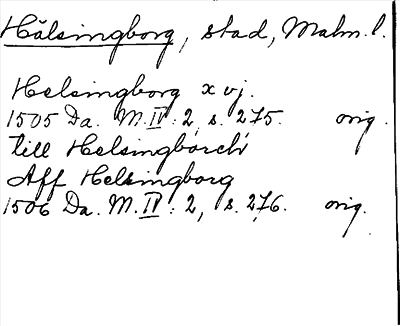 Hälsingborg, stad, Malm. l.
Helsingborg x vj.
1505 Da. M. IV: 2, s. 275. orig.
till Helsingborch
Aff Helsingborg
1506 Da. M. IV: 2, s. 276. orig.